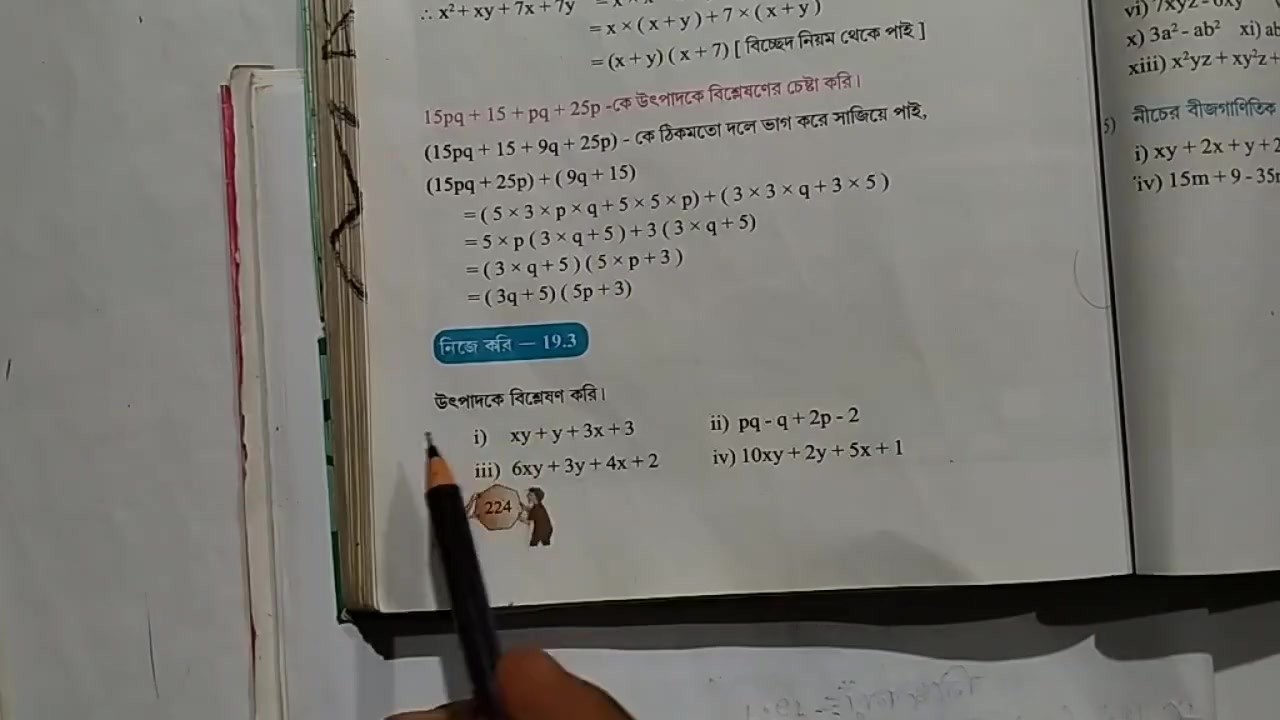 ∴ x² + xy + 7x + 7y
= x × (x + y) + 7 × (x + y)
= (x + y) (x + 7) [ বিচ্ছেদ নিয়ম থেকে পাই ]
15pq + 15 + pq + 25p -কে উৎপাদকে বিশ্লেষণের চেষ্টা করি।
(15pq + 15 + 9q + 25p) - কে ঠিকমতো দলে ভাগ করে সাজিয়ে পাই,
(15pq + 25p) + ( 9q + 15)
= ( 5 × 3 × p × q + 5 × 5 × p) + ( 3 × 3 × q + 3 × 5 )
= 5 × p ( 3 × q + 5 ) + 3 ( 3 × q + 5)
= ( 3 × q + 5 ) ( 5 × p + 3 )
= ( 3q + 5) ( 5p + 3)
নিজে করি — 19.3
উৎপাদকে বিশ্লেষণ করি।
i) xy + y + 3x + 3 ii) pq - q + 2p - 2
iii) 6xy + 3y + 4x + 2 iv) 10xy + 2y + 5x + 1
224
vi) 7xyz - 6xy
x) 3a² - ab² xi) ab
xiii) x²yz + xy²z +
5) নীচের বীজগাণিতিক
i) xy + 2x + y + 2
iv) 15m + 9 - 35m